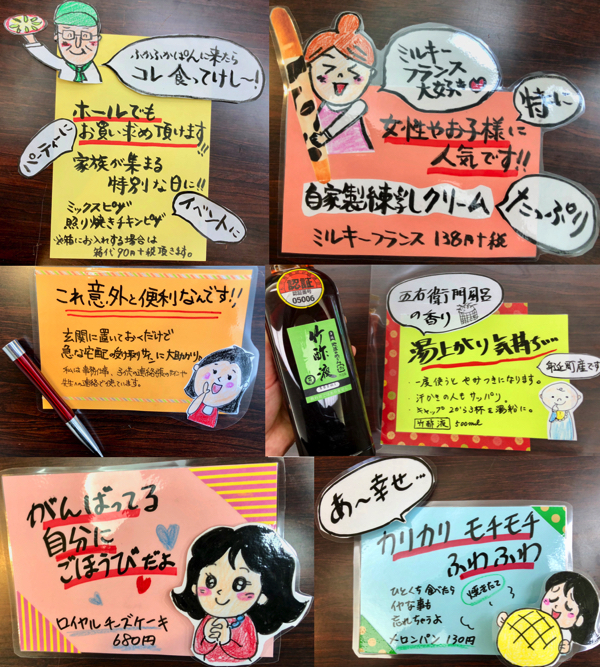 ふかふかぱんに来たら
コレ食ってけし〜!
ホールでも
お買い求め頂けます!!
パーティーに
家族が集まる
特別な日に!!
イベントに
ミックスピザ
照り焼きチキンピザ
※箱にお入れする場合は
箱代90円+税頂きます。
ミルキー
フランス
大好き
特に
女性やお子様に
人気です!!
自家製練乳クリーム
たっぷり
ミルキーフランス 138円+税
これ意外と便利なんです!!
玄関に置いておくだけで
急な宅配の受け取りに大助かり。
認証
認証番号
05006
竹酢液
五右衛門風呂
の香り
湯上がり気持ち…
年近町産です
・一度使うとやみつきになります。
・汗かきの人もサッパリ。
・キャップ2から3杯を湯船に。
竹酢液 500ml
がんばってる
自分に
ごほうびだよ
ロイヤルチーズケーキ
680円
あ〜幸せ…
カリカリ モチモチ
ふわふわ
ひとくち食べたら
イヤな事も
忘れちゃうよ
焼きたて
メロンパン 130円